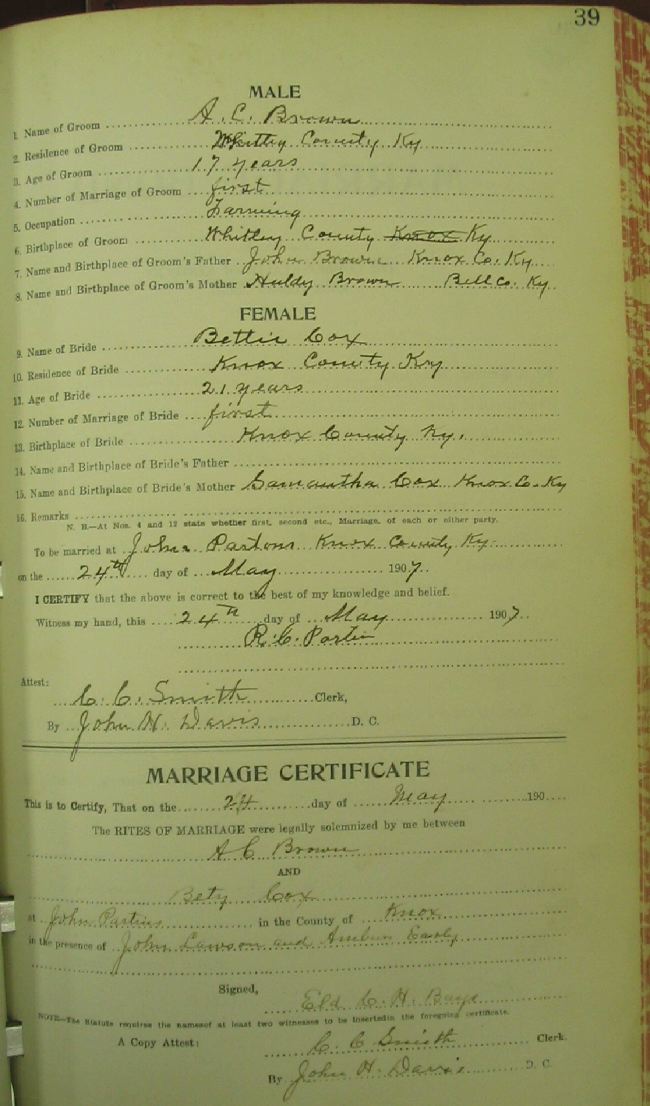 39
MALE
1. Name of Groom A. C. Brown
2. Residence of Groom Whitley County Ky
3. Age of Groom 17 years
4. Number of Marriage of Groom first
5. Occupation Farming
6. Birthplace of Groom Whitley County Knox Ky
7. Name and Birthplace of Groom's Father John Brown Knox Co. Ky
8. Name and Birthplace of Groom's Mother Huldy Brown Bell Co. Ky.
FEMALE
9. Name of Bride Bettie Cox
10. Residence of Bride Knox County Ky
11. Age of Bride 21 years
12. Number of Marriage of Bride first
13. Birthplace of Bride Knox County Ky.
14. Name and Birthplace of Bride's Father
15. Name and Birthplace of Bride's Mother Samantha Cox Knox Co. Ky
16. Remarks
N. B.—At Nos. 4 and 12 state whether first, second etc., Marriage, of each or either party.
To be married at John Partons Knox County Ky.
on the 24th day of May 1907.
I CERTIFY that the above is correct to the best of my knowledge and belief.
Witness my hand, this 24th day of May 1907.
R. C. Partin
Attest:
C. C. Smith Clerk,
By John H. Davis D. C.
MARRIAGE CERTIFICATE
This is to Certify, That on the 24 day of May 190
The RITES OF MARRIAGE were legally solemnized by me between
A C Brown
AND
Bety Cox
at John Partins in the County of Knox
in the presence of John Lawson and
Signed,
Eld C. H. Bays
NOTE—The Statute requires the names of at least two witnesses to be inserted in the foregoing certificate.
A Copy Attest: C. C. Smith Clerk.
By John H. Davis D. C.